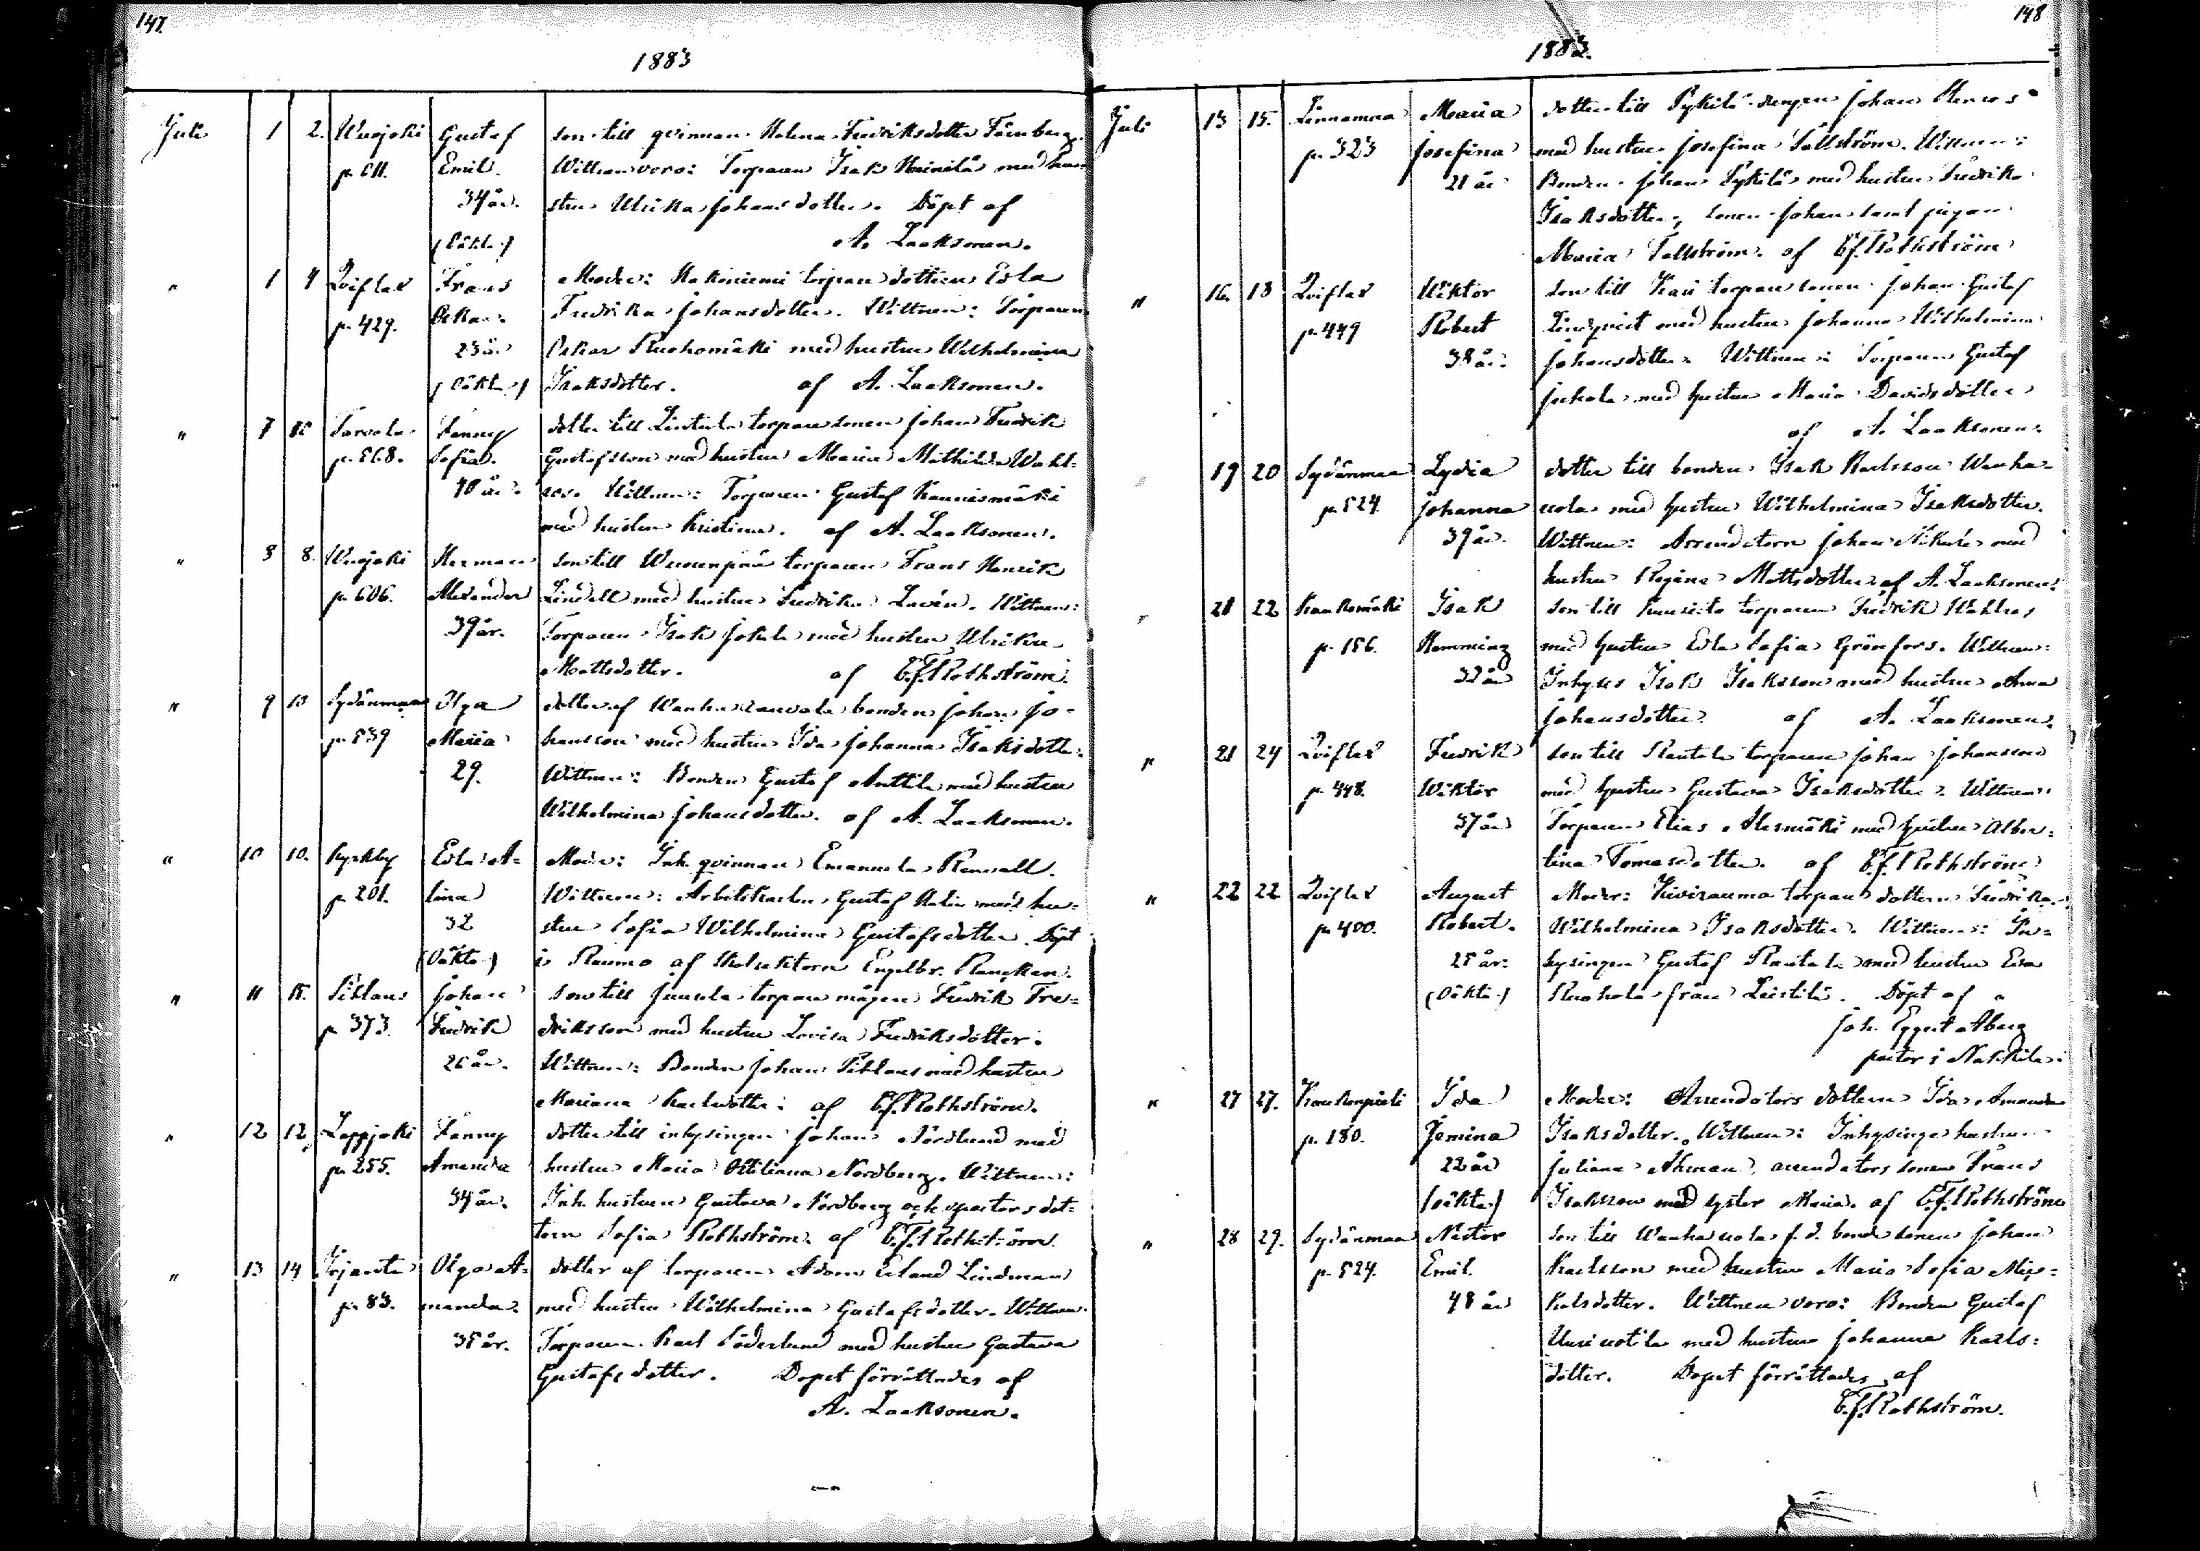 147.
1883
Juli 1 2. Wuojoki Gustaf son till qvinnan Helena Fredriksdotter
p. 611. Emil. Wittnen voro: Torparen Isak Heinilä med hu-
34 år. stru Ulrika Johansdotter. Döpt af
(Oäkta) A. Laaksonen.
" 1 4 Qviflax Frans Moder: torpare dottren Edla
p. 429. Oskar Fredrika Johansdotter. Wittnen: Torparen
23 år Oskar Ruohomäki med hustru Wilhelmina
(Oäkta) Isaksdotter. af A. Laaksonen.
" 7 Tarvola Fanny dotter till torparesonen Johan Fredrik
p. 568. Sofia. Gustafsson med hustru Maria Mathilda Wahl-
40 år. Wittnen: Torparen Gustaf
med hustru Kristina. af A. Laaksonen.
" 8 8. Wuojoki Herman son till torparen Frans Henrik
p. 606. Alexander Lindell med hustru Fredrika Lavén. Wittnen:
39 år. Torparen Isak Jokela med hustru Ulrika
Mattsdotter. af C.f. Rothström.
" 9 Sydänmaa Olga dotter af bonden Johan Jo-
p. 539 Maria hansson med hustru Ida Johanna Isaksdotter
29. Wittnen: Bonden Gustaf Anttila med hustru
Wilhelmina Johansdotter. af A. Laaksonen.
" 10 10. Kyrkby Edla A- Moder: Inh. qvinnan Emanuela Renvall.
p. 201. lina Wittnen: Arbetskarlen Gustaf med hu-
32 stru Sofia Wilhelmina Gustafsdotter. Döpt
(Oäkta) i Raumo af Skolrektorn Engelbr. Rancken.
" 11 15. Pihlaus Johan son till Juusela torpare mågen Fredrik Fre-
p. 373. Fredrik driksson med hustru Lovisa Fredriksdotter.
26 år. Wittnen: Bonden Johan Pihlaus med hustru
Mariana Karlsdotter. af C.f. Rothström.
" 12 12 Lappjoki Fanny dotter till inhysingen Johan Nordlund med
p. 255. Amanda hustru Maria Ottiliana Nordberg. Wittnen:
34 år. Inh. hustrun Gustava Nordberg och pastorsdot-
tern Sofia Rothström. af C.f. Rothström.
" 13 14 Irjanta Olga A- dotter af torparen Adam Erland Lindman
p. 83. manda. med hustru Wilhelmina Gustafsdotter. Wittnen:
35 år. Torparen Karl Söderlund med hustru Gustava
Gustafsdotter. Dopet förrättades af
A. Laaksonen.
148
1883.
Juli 13 15. Linnamaa Maria dotter till Pykilä drengen Johan
p. 323 Josefina med hustru Josefina Sallström. Wittnen:
21 år Bonden Johan Pykilä med hustru Fredrika
Isaksdotter, sonen Johan samt pigan
Maria Sallström. af C.f. Rothström
" 16. 18 Qviflax Wiktor son till torpare sonen Johan Gustaf
p. 449 Robert Lindqvist med hustru Johanna Wilhelmina
38 år. Johansdotter. Wittnen: Torparen Gustaf
med hustru Maria Davidsdotter
af A. Laaksonen.
19 20 Sydänmaa Lydia dotter till bonden Isak Karlsson Wanha-
p. 524. Johanna uola med hustru Wilhelmina Isaksdotter.
39 år. Wittnen: Arrendatorn Johan med
hustru Regina Mattsdotter af A. Laaksonen.
21 22 Kaukomäki Isak son till torparen Fredrik
p. 156. Hemming med hustru Edla Sofia Grönfors. Wittnen:
32 år Inhyses Isak Isaksson med hustru Anna
Johansdotter. af A. Laaksonen.
" 21 24 Qviflax Fredrik son till Rantala torparen Johan Johansson
p. 448. Wiktor med hustru Gustava Isaksdotter. Wittnen:
37 år Torparen Elias med hustru Alber-
tina Tomasdotter. af C.f. Rothström
" 22 22 Qviflax August Moder: Kivirauma torpare dottern Fredrika
p. 400. Robert. Wilhelmina Isaksdotter. Wittnen: In-
25 år. hysingen Gustaf Rantala med hustru Eva
(Oäkta) Ruohola från Leistilä. Döpt af
Joh. Eggert Åberg
pastor i Nakkila.
" 27 27. Ida Moder: Arrendators dottern Ida Amanda
p. 180. Jemina Isaksdotter. Wittnen: Inhysinge hustrun
22 år Juliana Åhman, arrendators sonen Frans
(oäkta) Isaksson med syster Maria. af C.f. Rothström
" 28 29. Sydänmaa Nestor son till Wanhauola f.d. bonde sonen Johan
p. 524. Emil. Karlsson med hustru Maria Sofia Mic-
48 år kelsdotter. Wittnen voro: Bonden Gustaf
Uusiuotila med hustru Johanna Karls-
dotter. Dopet förrättades af
C.f. Rothström.